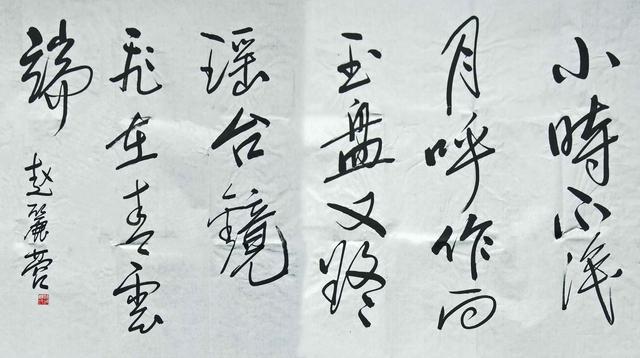 小時不識
月呼作白
玉盤又疑
瑶台鏡
飛在青雲
端
赵麗